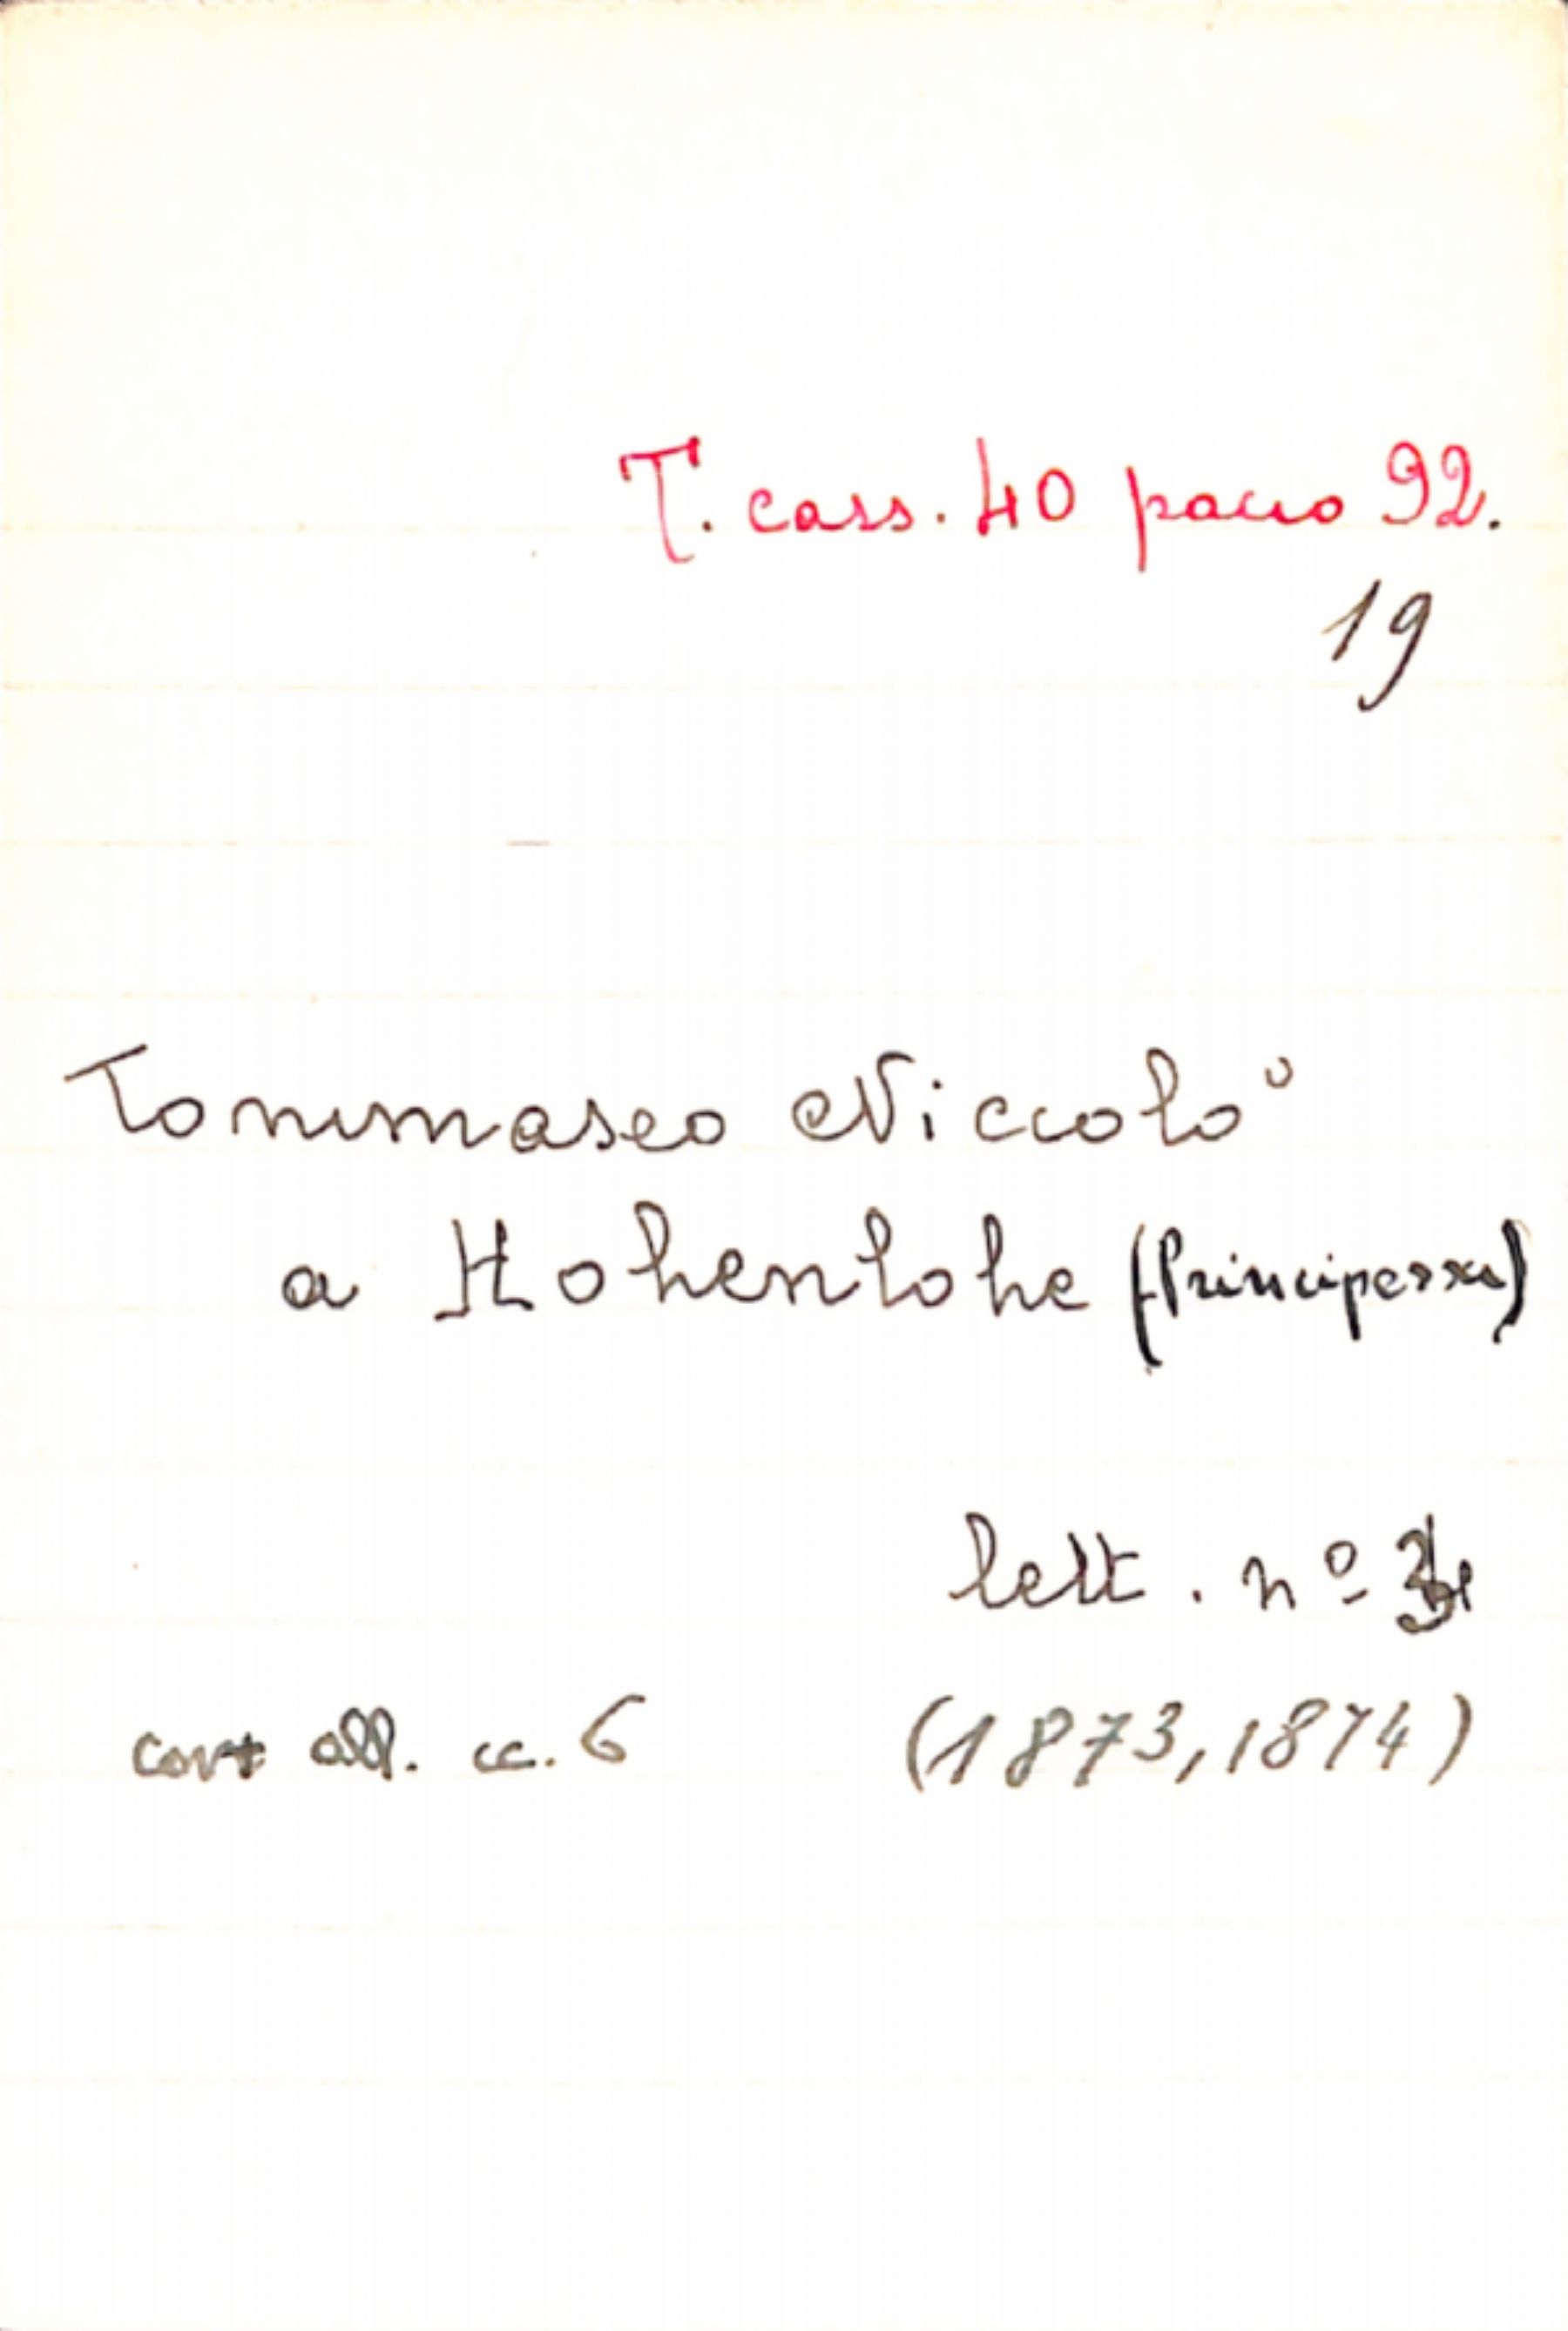 T. cass. 40 pacco 92.
19
Tommaseo Niccolò
a Hohenlohe (Principessa)
lett. nº
all. cc. 6 (1873, 1874)